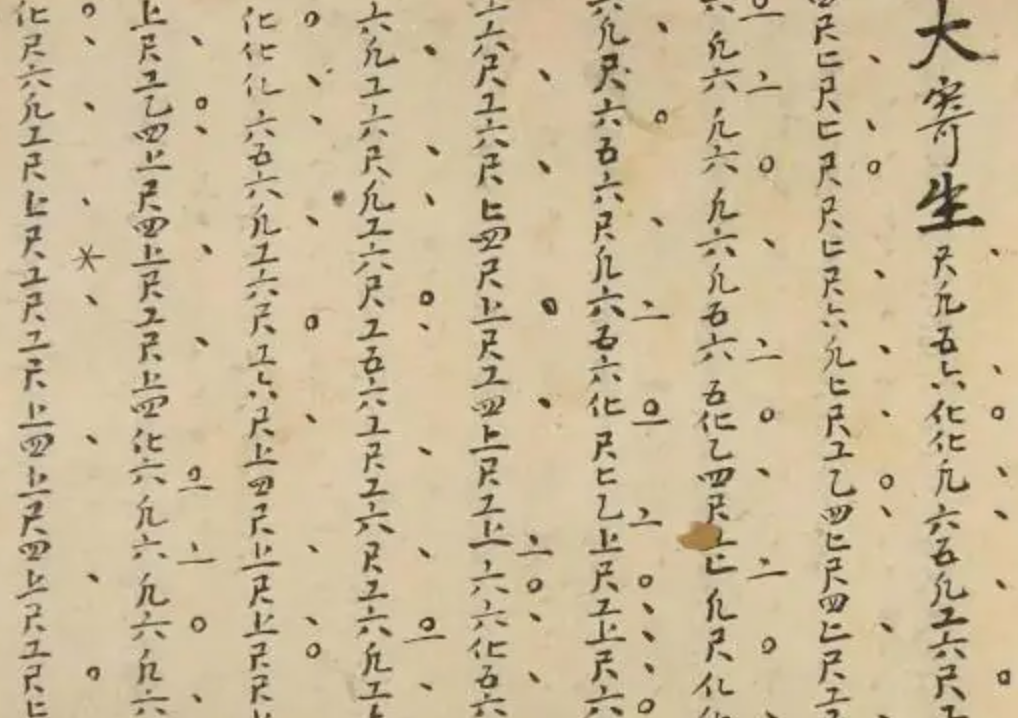 大寄生尺凡五六化化凡六五凡工六尺工
四尺上尺上尺尺上尺六凡上尺工乙四上尺四上尺工
六凡六凡六凡六凡五六五化乙四尺上凡尺化
六凡尺六五六尺凡六五六化尺上乙上尺工上尺六
工六尺工六尺上四尺上尺工四上尺工上六六化五六
六凡工六尺凡工六尺工五六工尺工六尺工六凡工
化化化六五六凡工六尺工六尺上四尺上尺上尺尺
上尺工乙四上尺四上尺工尺上四化六凡六凡六凡六
化尺六凡工尺上尺工尺工尺上四上尺四上尺工尺上